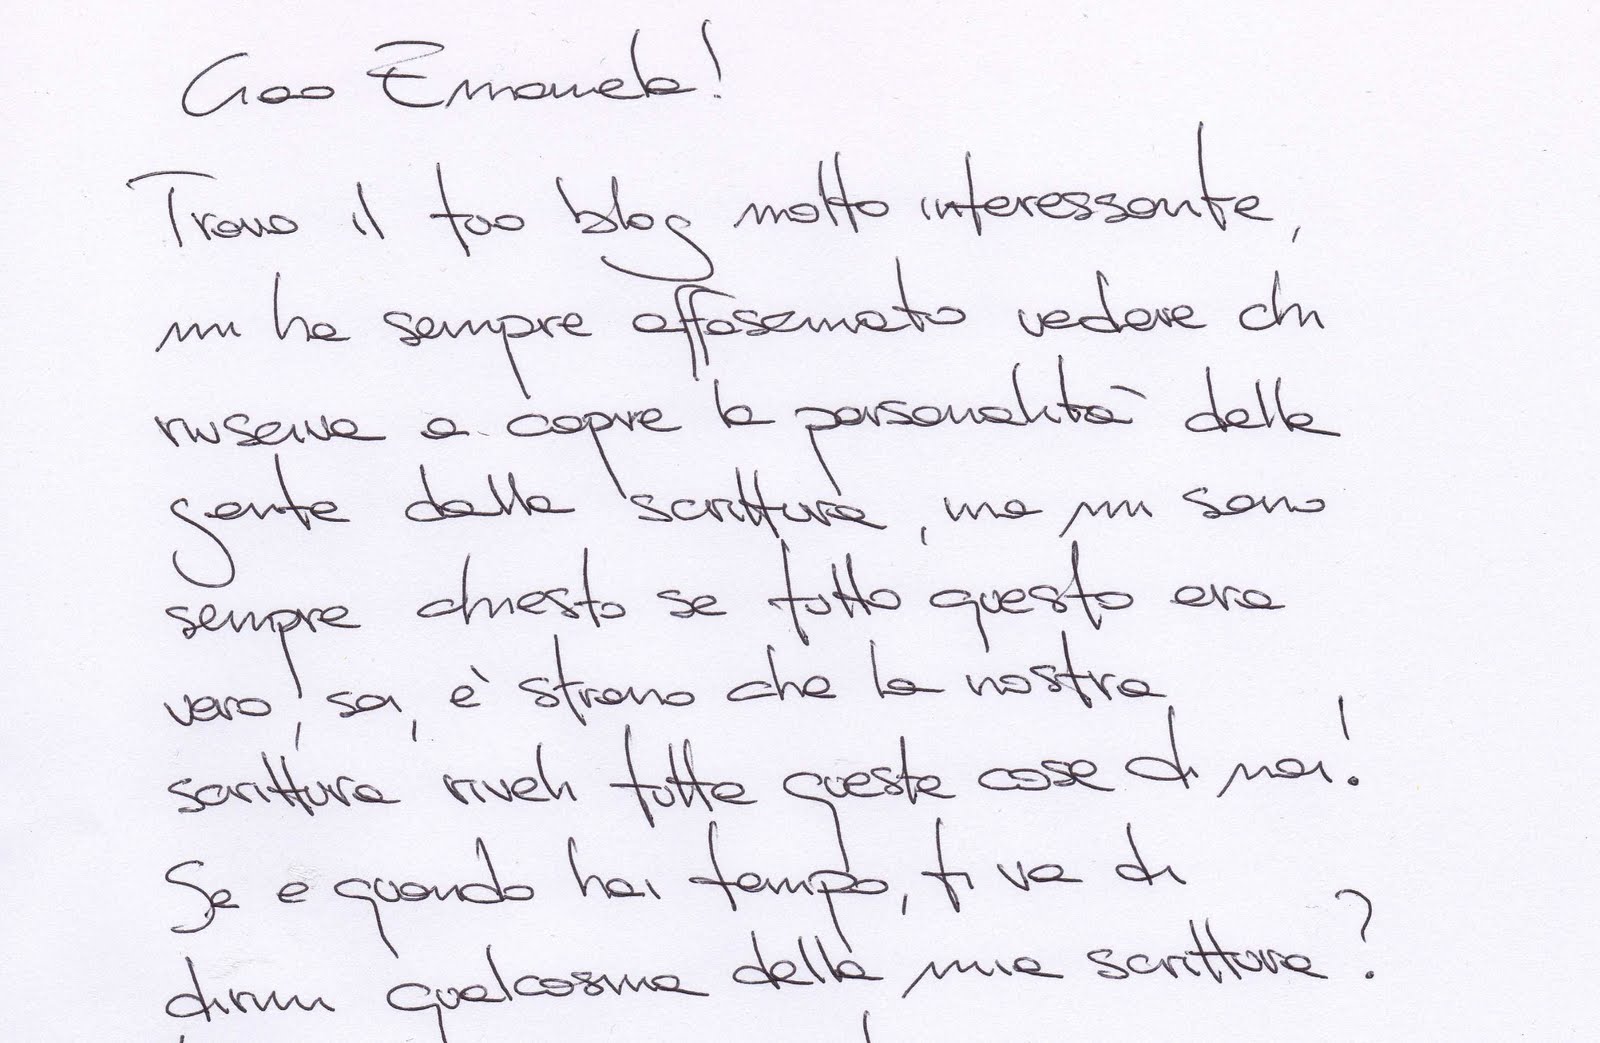 Ciao Emanuela!
Trovo il tuo blog molto interessante,
mi ha sempre affascinato vedere chi
riusciva a capire la personalità della
gente dalla scrittura, ma mi sono
sempre chiesto se tutto questo era
vero, sai, è strano che la nostra
scrittura riveli tutte queste cose di noi!
Se e quando hai tempo, ti va di
dirmi qualcosina della mia scrittura?